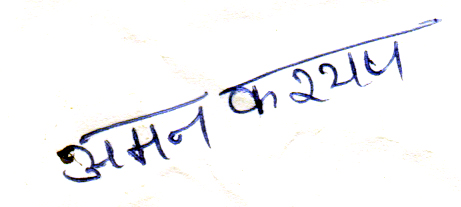 अमन कश्यप